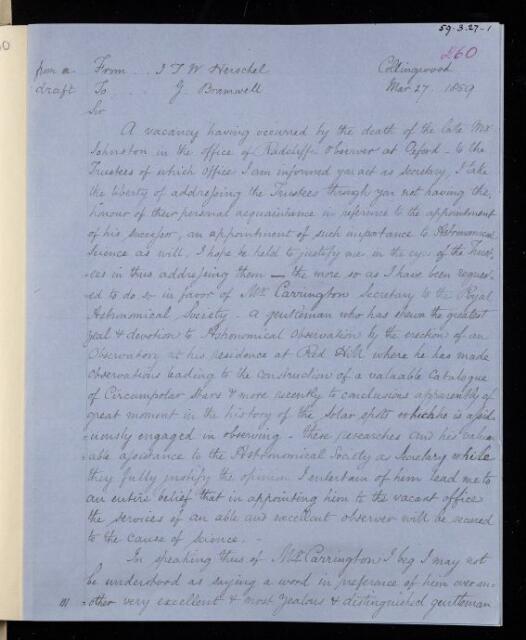 59-3-27-1
260
from a draft
From . . . J F W Herschel
Collingwood
To . . . G. Bramwell
Mar. 27. 1859
Sir
A vacancy having occurred by the death of the late Mr
Johnston in the office of Radcliffe Observer at Oxford - to the
Trustees of which office I am informed you act as Secretary, I take
the liberty of addressing the Trustees through you not having the
honour of their personal acquaintance in reference to the appointment
of his successor, an appointment of such importance to Astronomical
Science as will, I hope be held to justify me in the eyes of the Trust-
-ees in thus addressing them — the more so as I have been reques-
-ted to do so in favor of Mr. Carrington Secretary to the Royal
Astronomical Society - a gentleman who has shewn the greatest
zeal & devotion to Astronomical Observation by the erection of an
Observatory at his residence at Red Hill where he has made
observations leading to the construction of a valuable Catalogue
of Circumpolar Stars & more recently to conclusions apparently of
great moment in the history of the solar spots which he is assid-
-uously engaged in observing - these researches and his valu-
-able assistance to the Astronomical Society as Secretary while
they fully justify the opinion I entertain of him lead me to
an entire belief that in appointing him to the vacant office
the services of an able and excellent observer will be secured
to the cause of science. -
In speaking thus of Mr. Carrington I beg I may not
be understood as saying a word in preference of him over an-
-other very excellent & most zealous & distinguished gentleman